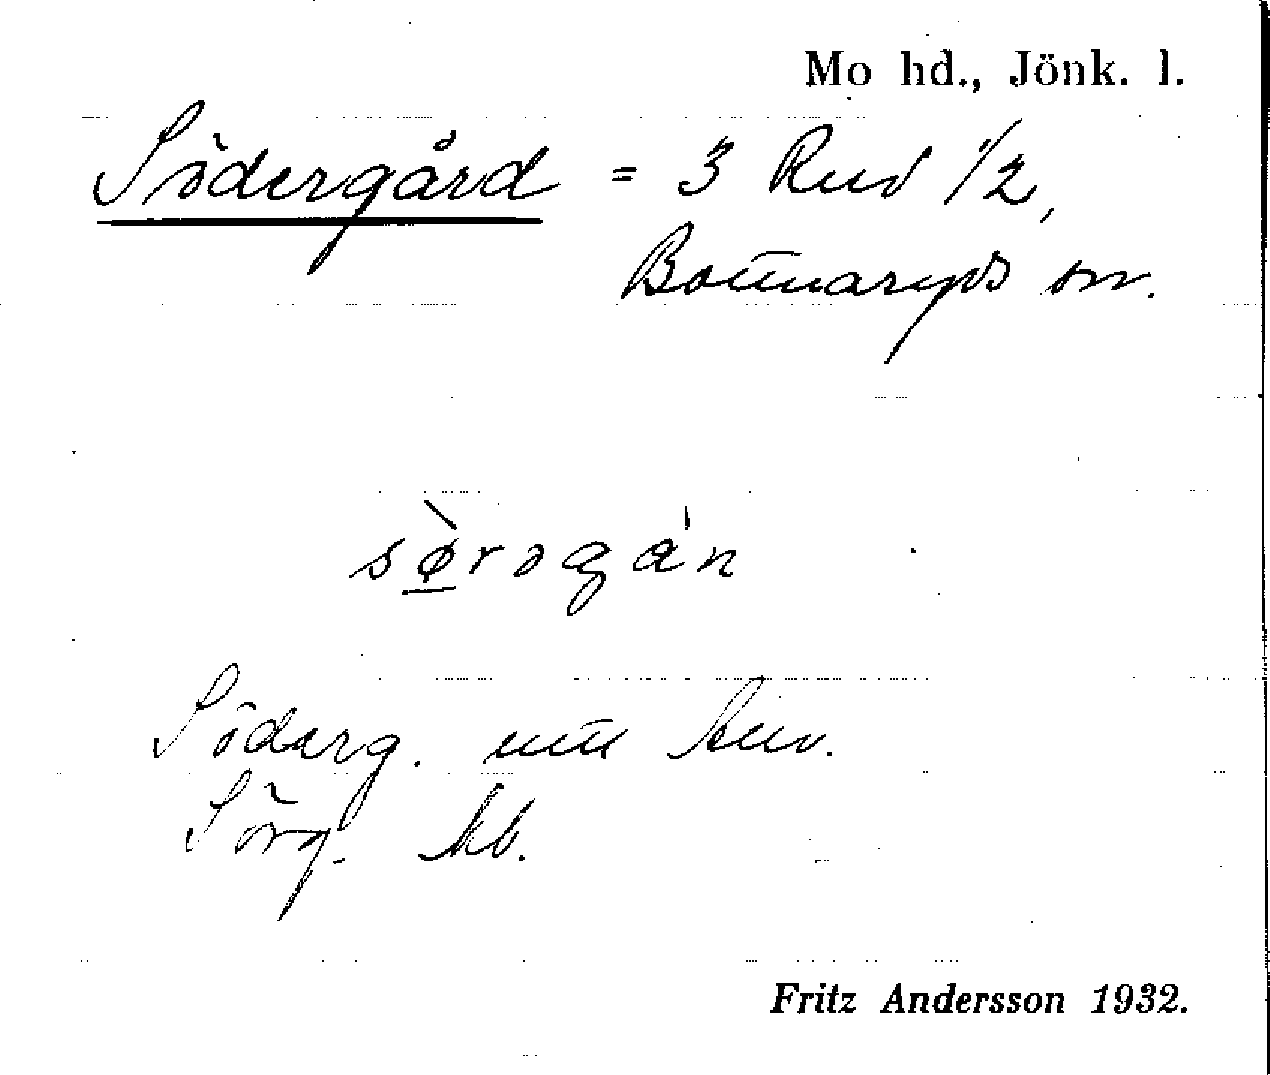 Mo hd., Jönk. l.
Södergård = 3 Rud 1/2,
Bottnaryds sn.
sø̀rogán
Söderg.
Sörg. kb.
Fritz Andersson 1932.